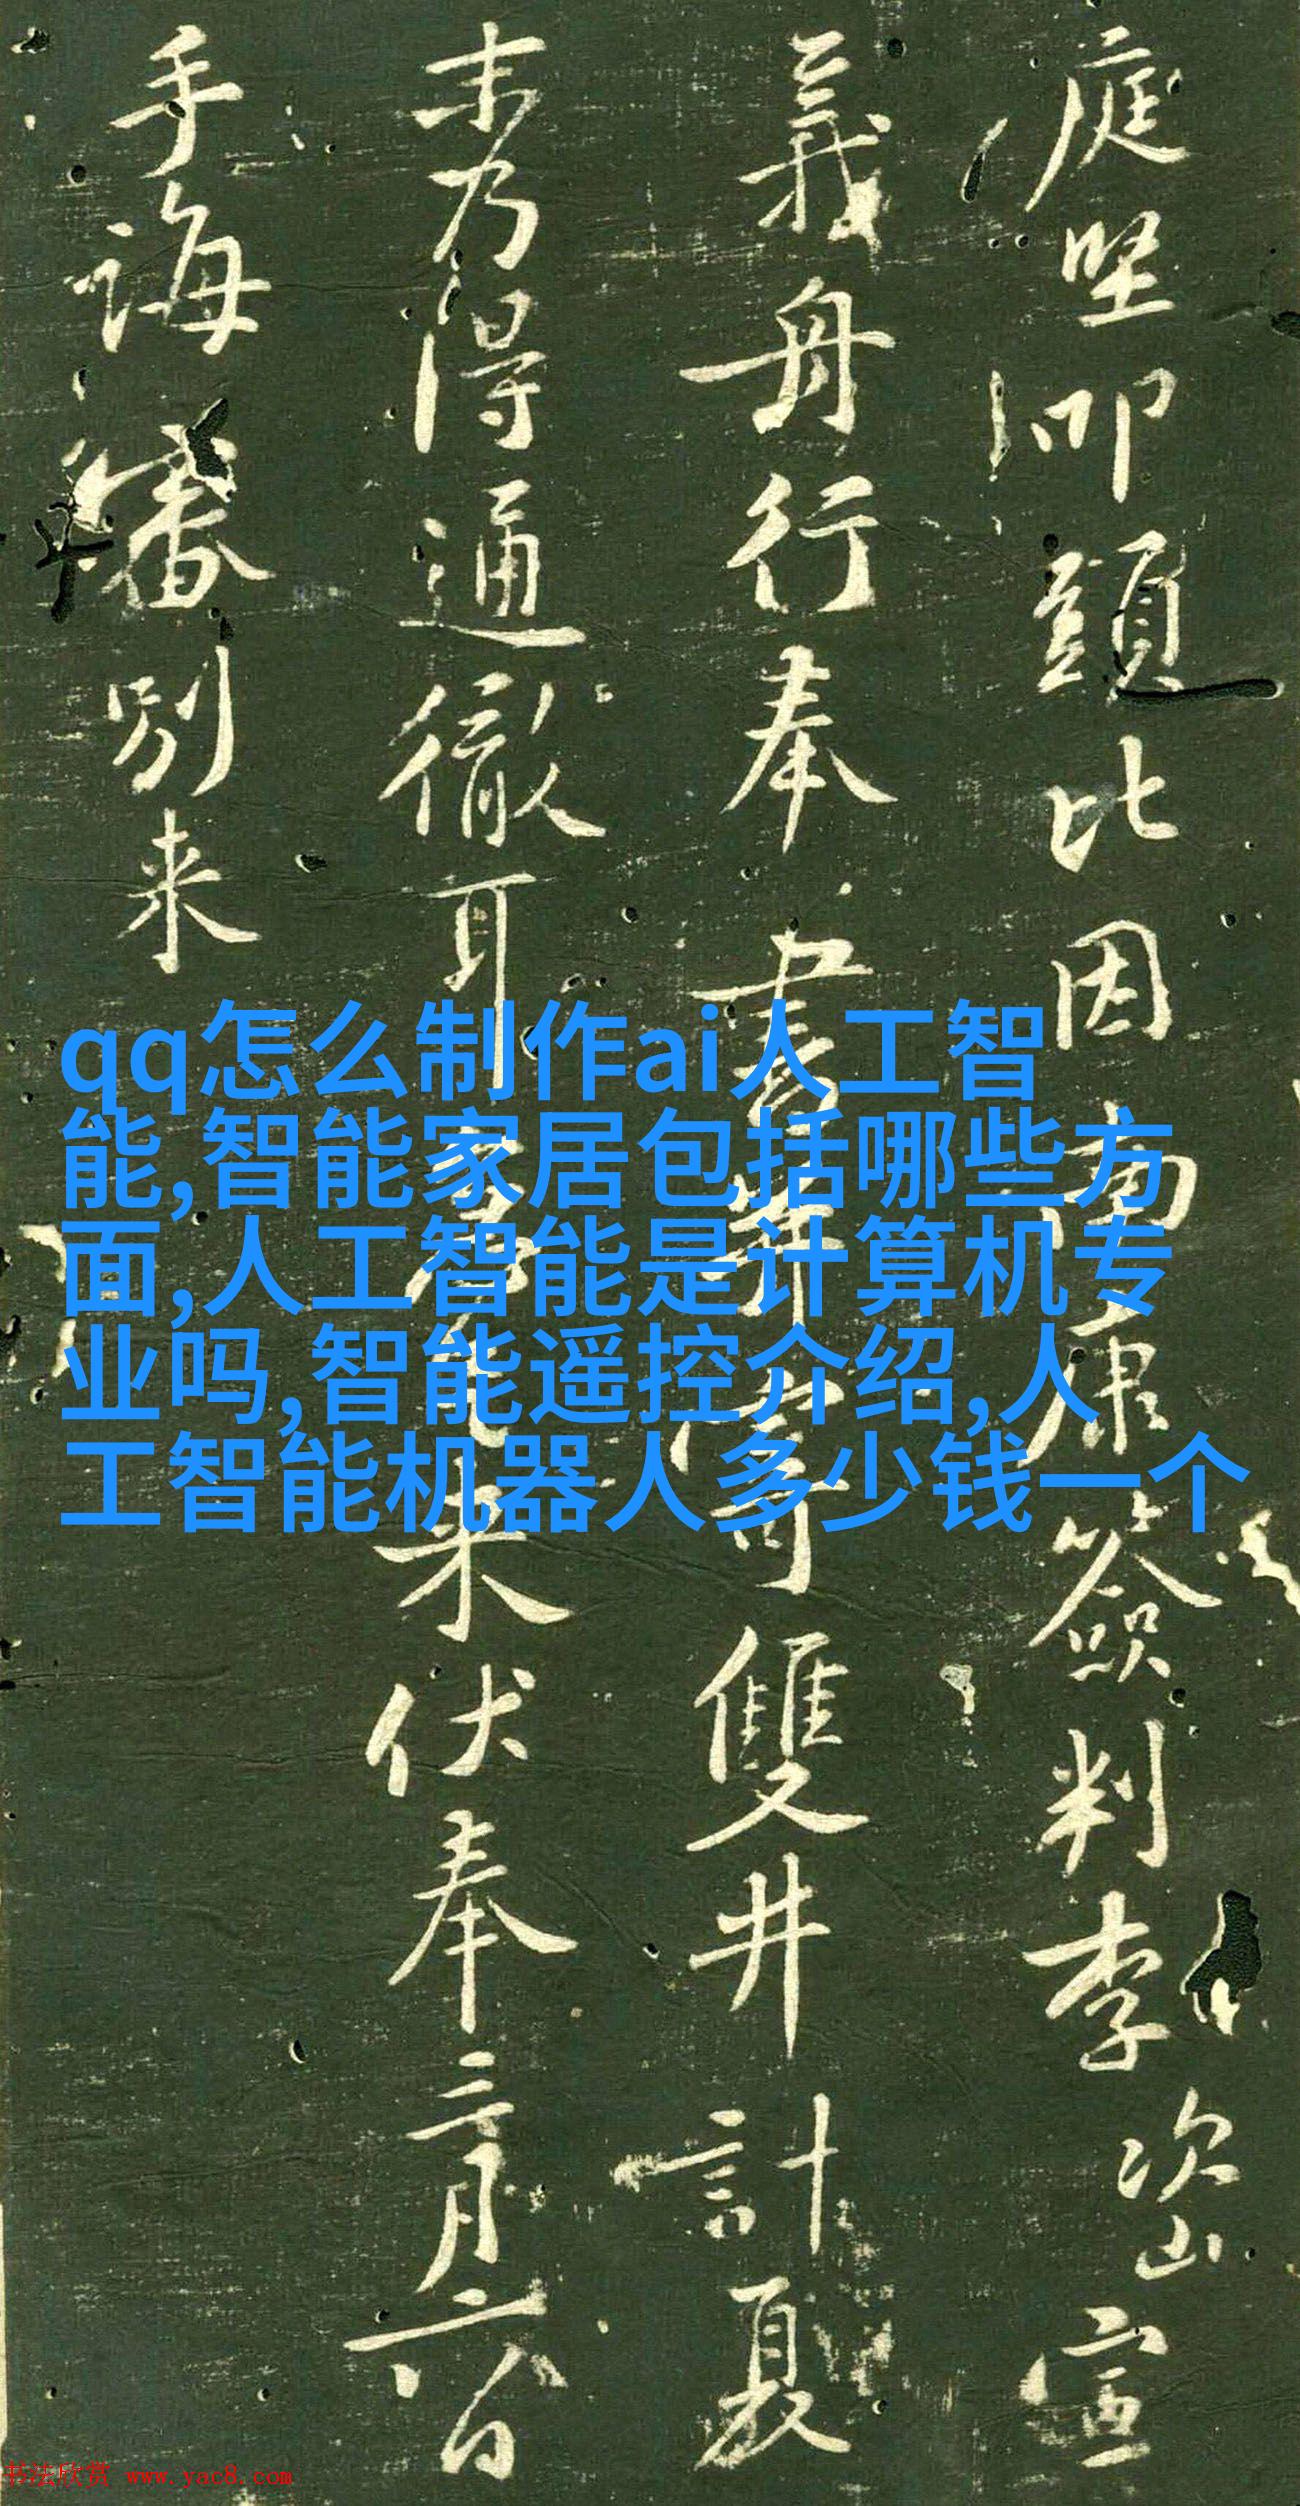 庭堅叩頭比因南康簽判李次山宣
義舟行奉書并寄雙井計夏
末乃得通徹耳
来伏奉三月六日
手誨審別来
qq怎么制作ai人工智
能,智能家居包括哪些方
面,人工智能是计算机专
业吗,智能遥控介绍,人
工智能机器人多少钱一个
书法欣赏 www.yac8.com